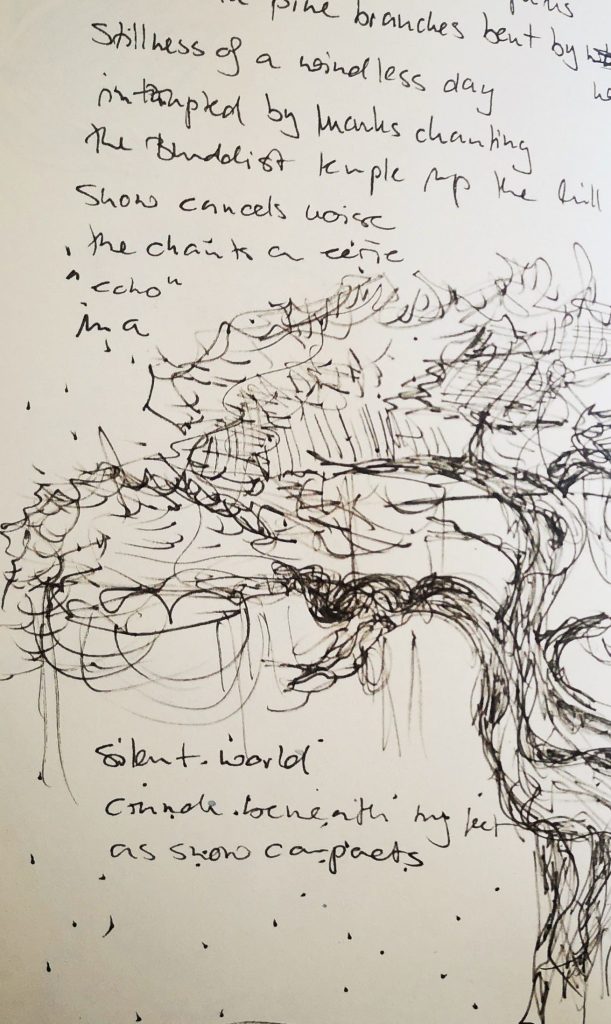 pine branches bent by
Stillness of a windless day
interupted by Monks chanting
the Buddist temple up the hill
Snow cancels noise
the chants a eerie
"echo"
in a
silent world
beneath my feet
as snow compacts